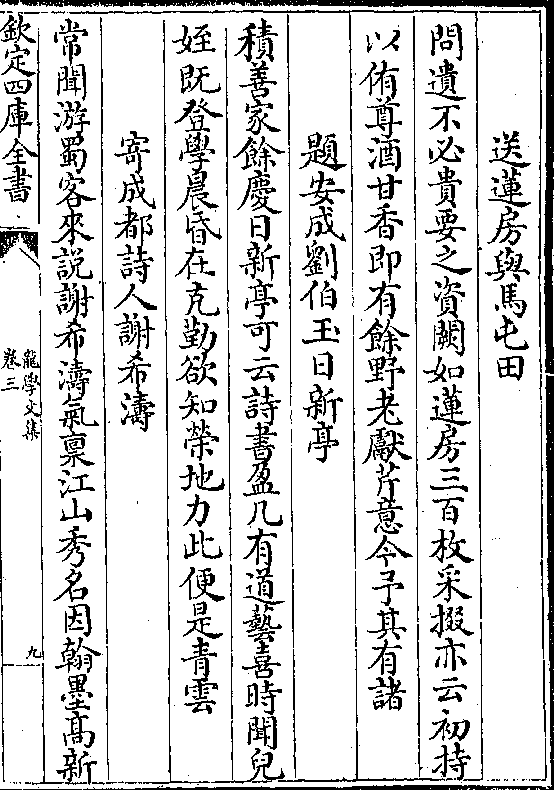 送蓮房與馬屯田
問遺不必貴要之資闕如蓮房三百枚采掇亦云初持
以侑尊酒甘香即有餘野老獻芹意今予其有諸
題安成劉伯玉日新亭
積善家餘慶日新亭可云詩書盈几有道藝喜時聞兒
姪既登學晨昏在克勤欲知榮地力此便是青雲
寄成都詩人謝希濤
常聞游蜀客來説謝希濤氣稟江山秀名因翰墨髙新
欽定四庫全書
龍學文集
卷三
九